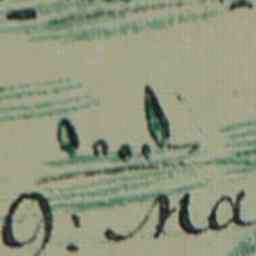 9: Ma